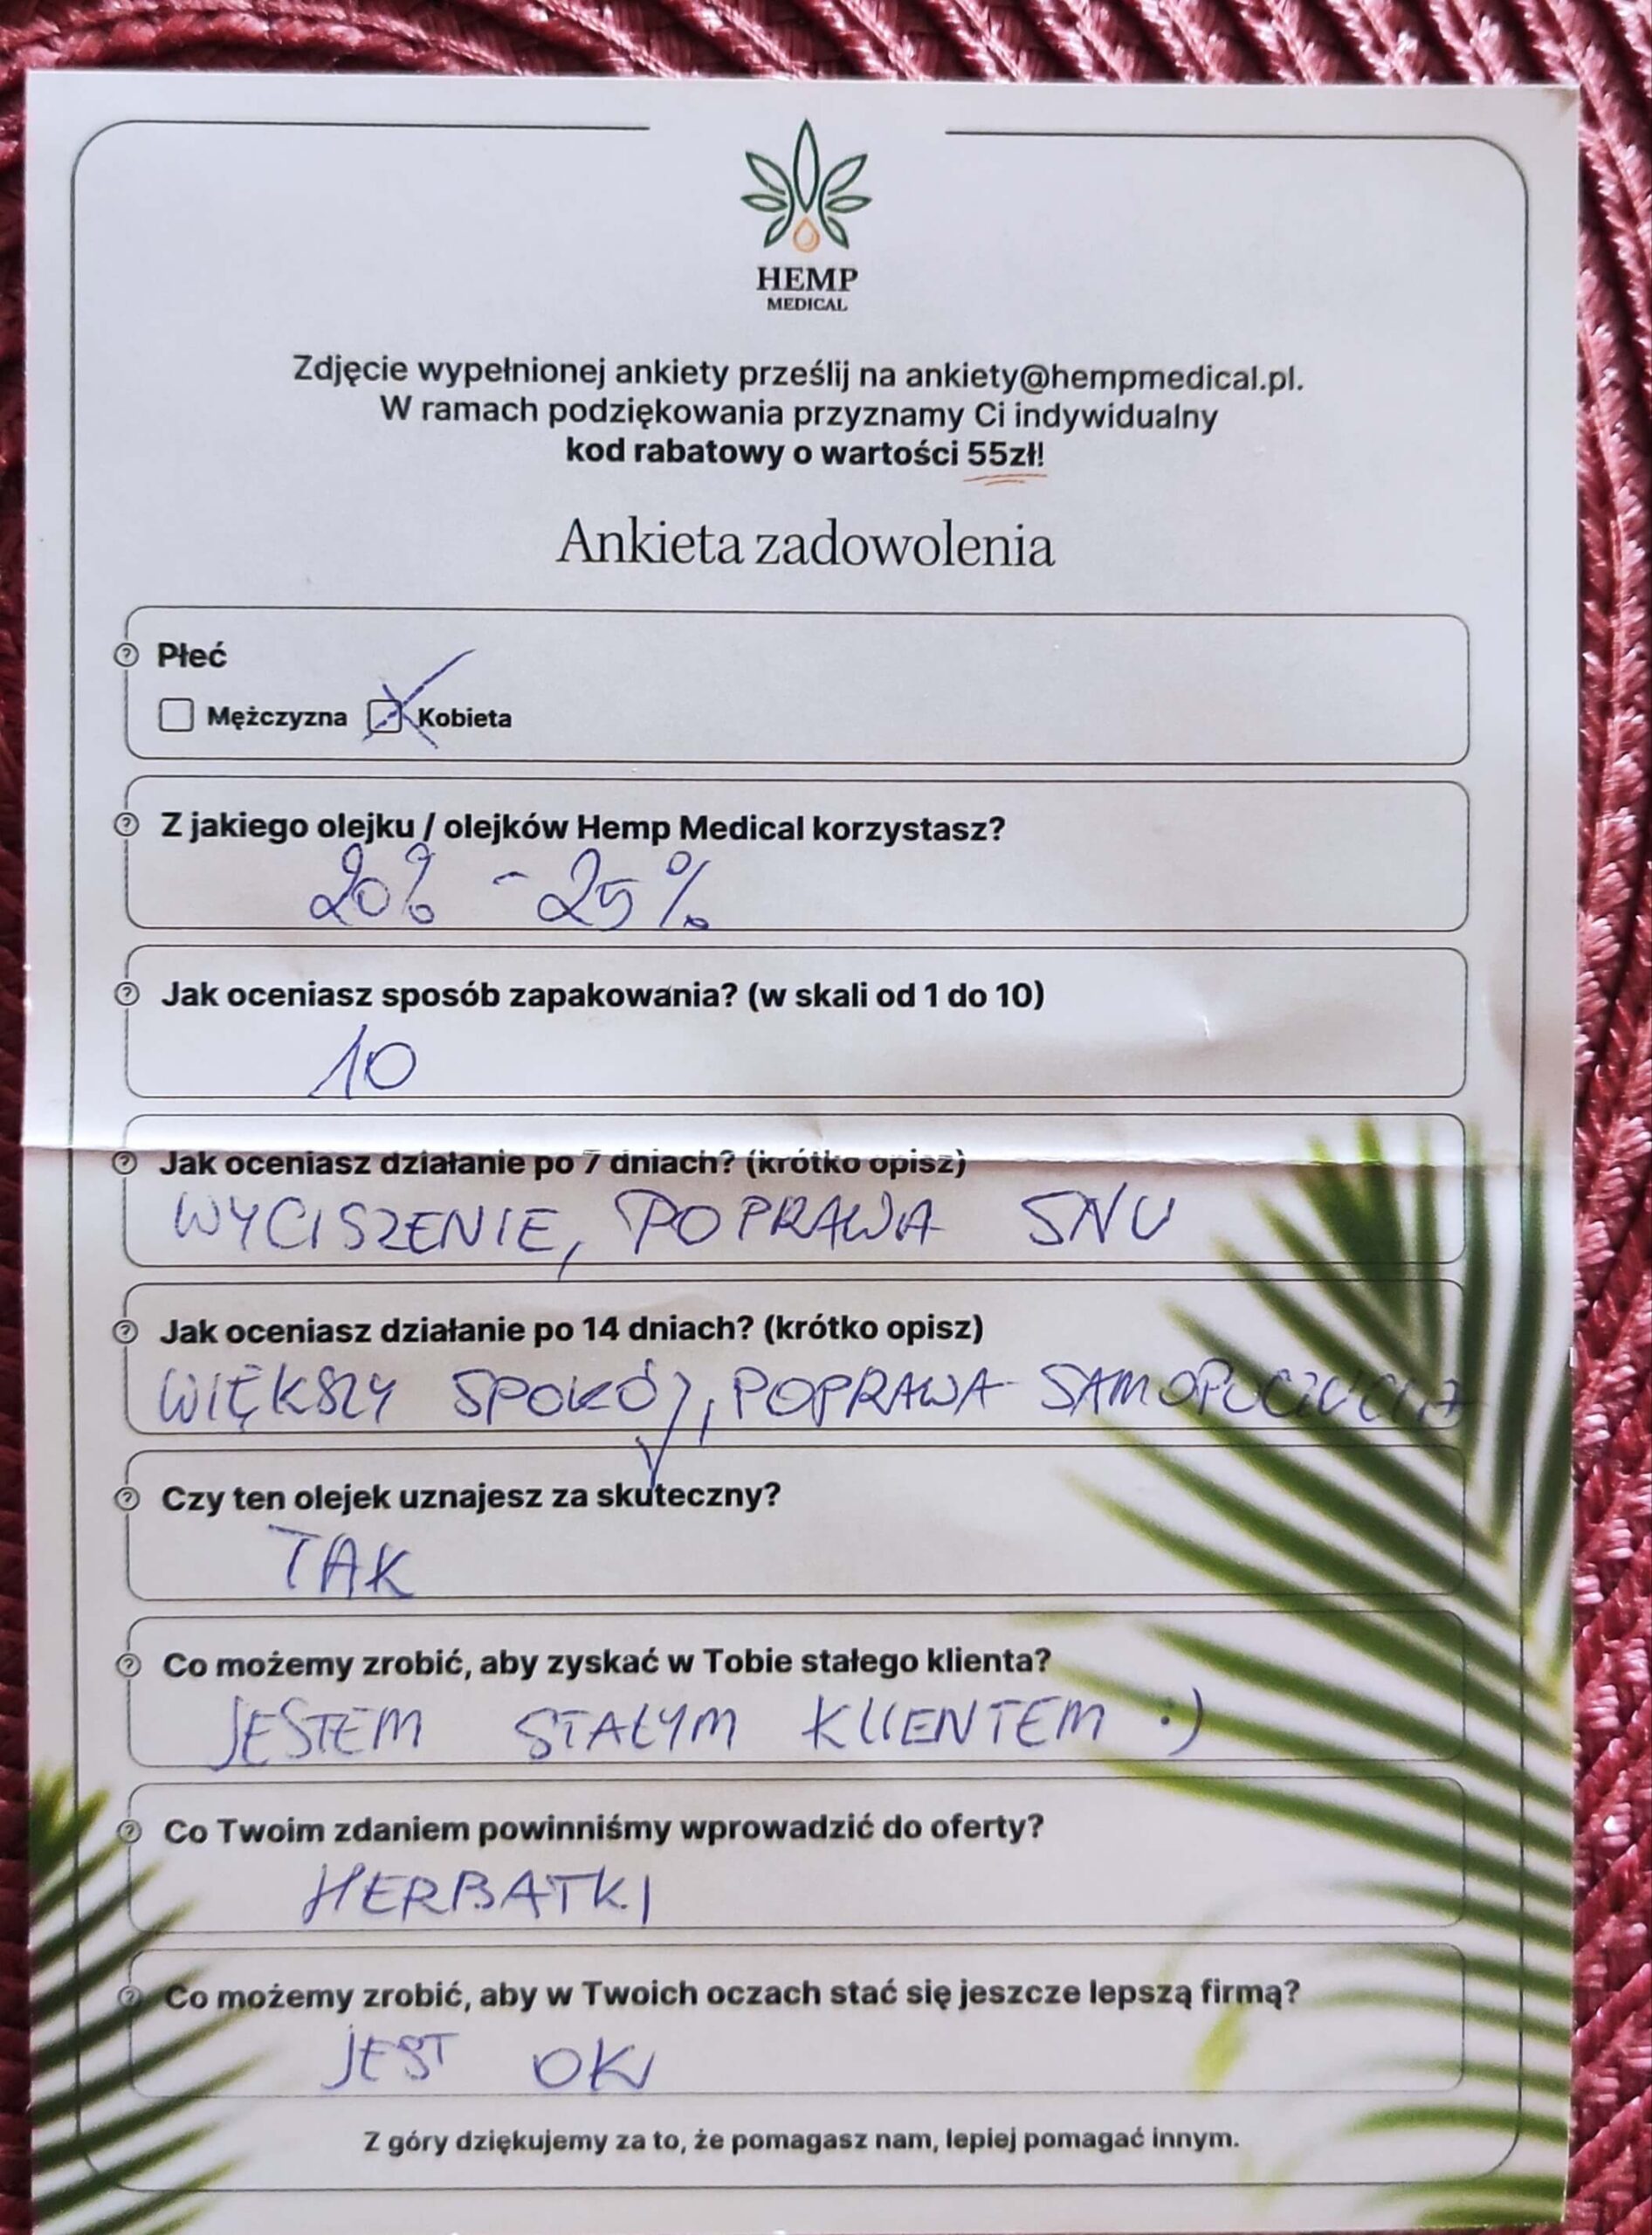 HEMP
MEDICAL
Zdjęcie wypełnionej ankiety prześlij na ankiety@hempmedical.pl.
W ramach podziękowania przyznamy Ci indywidualny
kod rabatowy o wartości 55zł!
Ankieta zadowolenia
Płeć
Mężczyzna Kobieta
Z jakiego olejku / olejków Hemp Medical korzystasz?
20% - 25%
Jak oceniasz sposób zapakowania? (w skali od 1 do 10)
10
Jak oceniasz działanie po 7 dniach? (krótko opisz)
WYCISZENIE, POPRAWA SNU
Jak oceniasz działanie po 14 dniach? (krótko opisz)
WIĘKSZY SPOKÓJ, POPRAWA SAMOPOCZUCIA
Czy ten olejek uznajesz za skuteczny?
TAK
Co możemy zrobić, aby zyskać w Tobie stałego klienta?
JESTEM STAŁYM KLIENTEM :)
Co Twoim zdaniem powinniśmy wprowadzić do oferty?
HERBATKI
Co możemy zrobić, aby w Twoich oczach stać się jeszcze lepszą firmą?
JEST OK
Z góry dziękujemy za to, że pomagasz nam, lepiej pomagać innym.